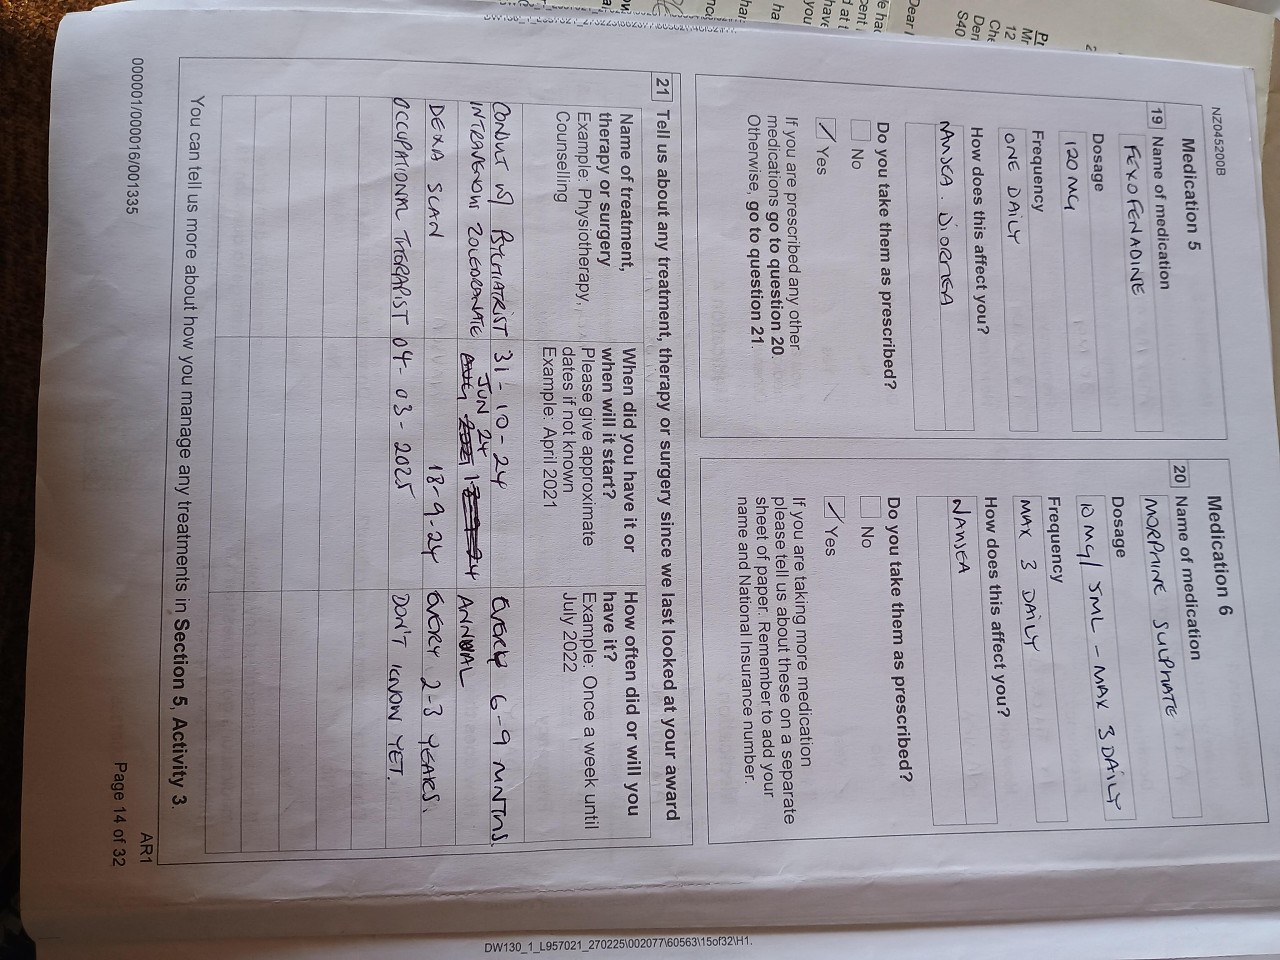 NZ045200B
Medication 5
19 Name of medication
FEXOFENADINE
Dosage
120 MG
Frequency
ONE DAILY
How does this affect you?
NANSEA. DIORREA
Do you take them as prescribed?
No
Yes
If you are prescribed any other
medications go to question 20.
Otherwise, go to question 21.
Medication 6
20 Name of medication
MORPHINE SULPHATE
Dosage
10 MG/5ML - MAX 3 DAILY
Frequency
MAX 3 DAILY
How does this affect you?
NANSEA
Do you take them as prescribed?
No
Yes
If you are taking more medication
please tell us about these on a separate
sheet of paper. Remember to add your
name and National Insurance number.
21 Tell us about any treatment, therapy or surgery since we last looked at your award
Name of treatment,
therapy or surgery
Example: Physiotherapy,
Counselling
When did you have it or
when will it start?
Please give approximate
dates if not known
Example: April 2021
How often did or will you
have it?
Example: Once a week until
July 2022
PSYCHIATRIST 31-10-24 EVERY 6-9 MNTHS.
INTRAVENOUS ZOLEDRONATE JUN 24 ANNUAL
DEXA SCAN 18-9-24 EVERY 2-3 YEARS.
OCCUPATIONAL THERAPIST 04-03-2025 DON'T KNOW YET.
You can tell us more about how you manage any treatments in Section 5, Activity 3.
AR1
000001/000016/001335
Page 14 of 32
DW130_1_L957021_270225\002077\60563\15of32\H1.